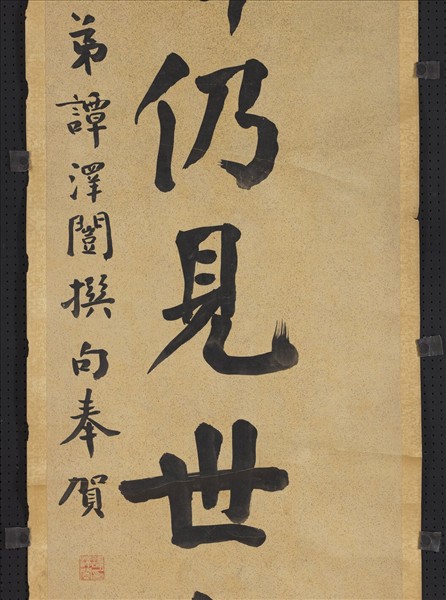 仍見世
弟譚澤闓撰句奉賀